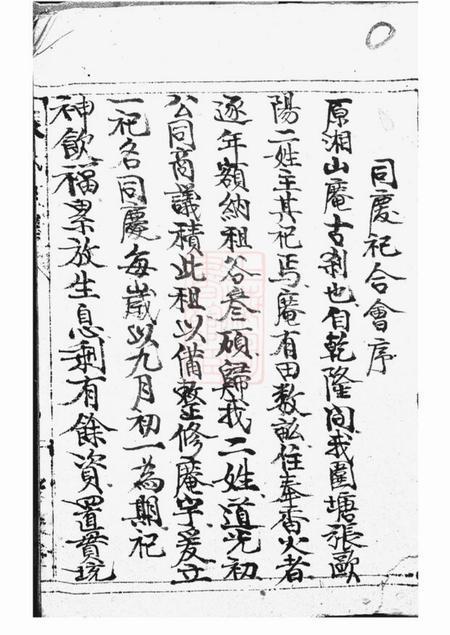 同慶祀合會序
原湘山庵古剎也自乾隆間我圍塘張歐
陽二姓主其祀焉庵有田数畝住奉香火者
逐年額納租谷叁碩歸我二姓道光初
公同商議積此租以備整修庵宇爰立
一祀名同慶每歲以九月初一為期祀
神飲福累放生息剩有餘資置貫坑